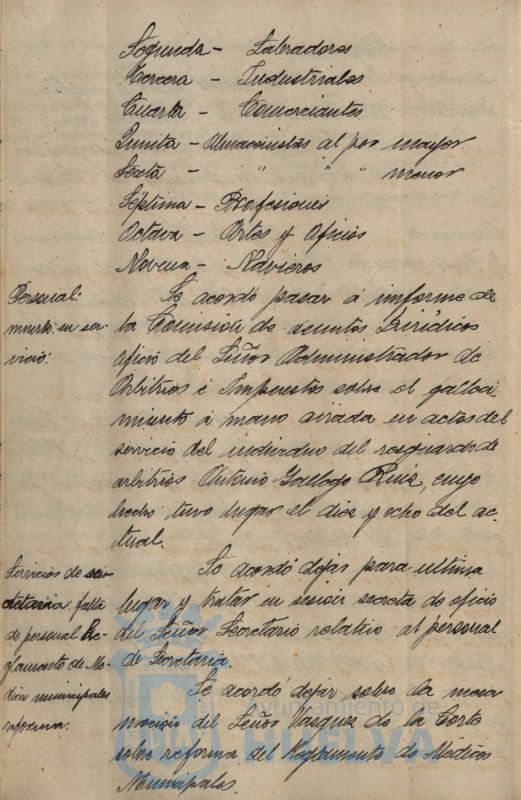 Segunda - Labradores
Tercera - Industriales
Cuarta - Comerciantes
Quinta - Almacenistas al por mayor
Sexta - " " " menor
Séptima - Profesiones
Octava - Artes y Oficios
Novena - Navieros
Personal:
muerto en ser-
vicio:
Se acordó pasar á informe de
la Comisión de asuntos Jurídicos
oficio del Señor Administrador de
Arbitrios é Impuestos sobre el galleci
miento á mano airada en actos del
servicio del individuo del resguardo de
arbitrios Antonio Gallego Ruiz, cuyo
hecho tuvo lugar el diez y ocho del ac-
tual.
Servicios de se-
cretaria: falta
de personal Re-
glamento de Mé-
dicos municipales
reforma:
Se acordó dejar para ultimo
lugar y tratar en sesión secreta de oficio
del Señor Secretario relativo al personal
de Secretaria.
Se acordó dejar sobre la mesa
moción del Señor Vazquez de la Corte
sobre reforma del Reglamento de Médicos
Municipales.
Ayuntamiento de
HUELVA